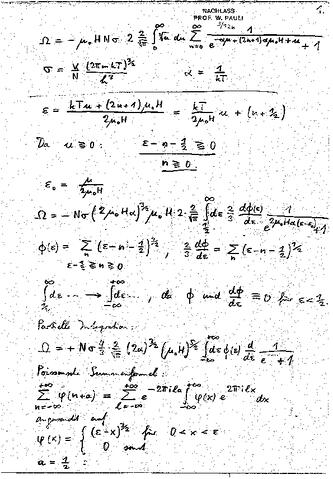 NACHLASS
PROF. W. PAULI
1.
Ω = - μ₀HNσ · 2 2/√π ∫₀^∞ √u du Σ_{n=0}^∞ 1/(e^{-αμ+(2n+1)αμ₀H+u} + 1)
σ = V/N (2πmkT)^{3/2}/h³   α = 1/kT
ε = (kTu + (2n+1)μ₀H)/(2μ₀H) = kT/(2μ₀H) u + (n+½)
Da u ≧ 0 : ε - n - ½ ≧ 0
n ≧ 0
ε₀ = μ/(2μ₀H)
Ω = - Nσ (2μ₀Hα)^{3/2} μ₀H · 2 · 2/√π ∫_{½}^∞ dε 2/3 dφ(ε)/dε 1/(e^{2μ₀Hα(ε-ε₀)} + 1)
φ(ε) = Σ_n (ε-n-½)^{3/2} , 2/3 dφ/dε = Σ_n (ε-n-½)^{½}
ε-½ ≧ n ≧ 0
∫_{½}^∞ dε ... → ∫_{-∞}^{+∞} dε ... , da φ und dφ/dε ≡ 0 für ε < ½.
Partielle Integration:
Ω = + Nσ 4/3 · 2/√π (2α)^{3/2} (μ₀H)^{5/2} ∫_{-∞}^{+∞} dε φ(ε) d/dε 1/(e^{...} + 1)
Poissonsche Summenformel:
Σ_{n=-∞}^{+∞} φ(n+a) = Σ_{l=-∞}^{+∞} e^{-2πila} ∫_{-∞}^{+∞} φ(x) e^{2πilx} dx
angewandt auf
φ(x) = { (ε-x)^{3/2} für 0 < x < ε
0 sonst
a = ½ :